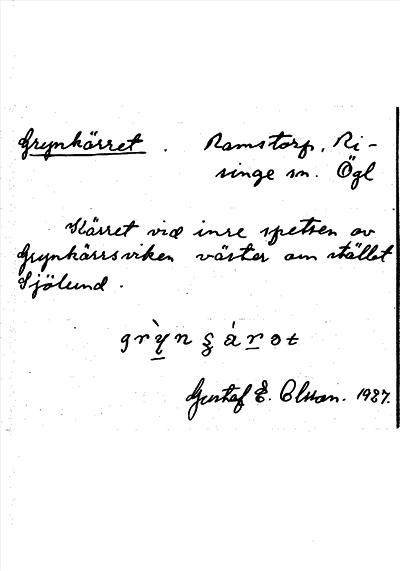 Grynkärret. Ramstorp, Ri-
singe sn. Ögl
Kärret vid inre spetsen av
Grynkärrsviken väster om stället
Sjölund.
Gustaf E. Olsson. 1987.